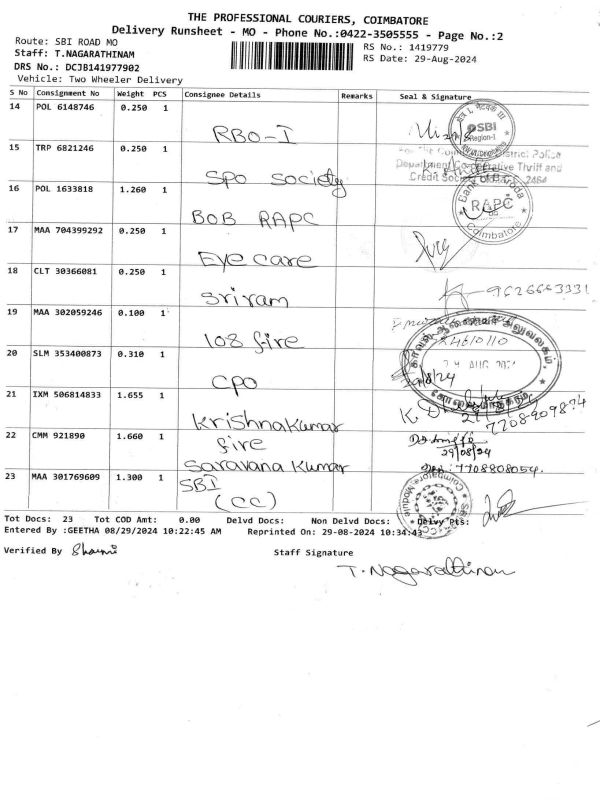 THE PROFESSIONAL COURIERS, COIMBATORE
Delivery Runsheet - MO - Phone No.:0422-3505555 - Page No.:2
Route: SBI ROAD MO
RS No.: 1419779
Staff: T.NAGARATHINAM
RS Date: 29-Aug-2024
DRS No.: DCJB141977902
Vehicle: Two Wheeler Delivery
S No Consignment No Weight PCS Consignee Details Remarks Seal & Signature
14 POL 6148746 0.250 1 RBO-I
SBI
Region-I
15 TRP 6821246 0.250 1 SPO Society
District Police
Department Co-operative Thrift and
Credit
16 POL 1633818 1.260 1 BOB RAPC
Bank of Baroda
RAPC
Coimbatore
17 MAA 704399292 0.250 1 Eye care
18 CLT 30366081 0.250 1 Sriram
9626663331
19 MAA 302059246 0.100 1 108 fire
20 SLM 353400873 0.310 1 CPO
29/8/24
21 IXM 506814833 1.655 1 Krishnakumar
fire
7708809874
22 CMM 921890 1.660 1 Saravana Kumar
29/08/24
7708808054.
23 MAA 301769609 1.300 1 SBI
(CC)
Tot Docs: 23 Tot COD Amt: 0.00 Delvd Docs: Non Delvd Docs: Delvy Pts:
Entered By :GEETHA 08/29/2024 10:22:45 AM Reprinted On: 29-08-2024 10:34:43
Verified By
Staff Signature
T. Nagarathinam